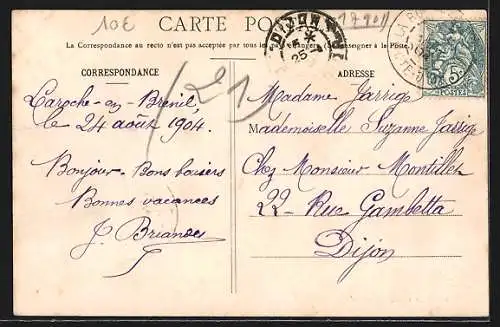 10€
CARTE POSTALE
La Correspondance au recto n'est pas acceptée par tous les pays étrangers (Se renseigner à la Poste.)
CORRESPONDANCE
ADRESSE
DIJON
25
5
POSTES
21
Laroche-en-Brenil
le 24 août 1904.
Bonjour. Bons baisers
Bonnes vacances
J. Briandes
Madame Jarrige
Mademoiselle Suzanne Jarrige
Chez Monsieur Montillet
22 - Rue Gambetta
Dijon